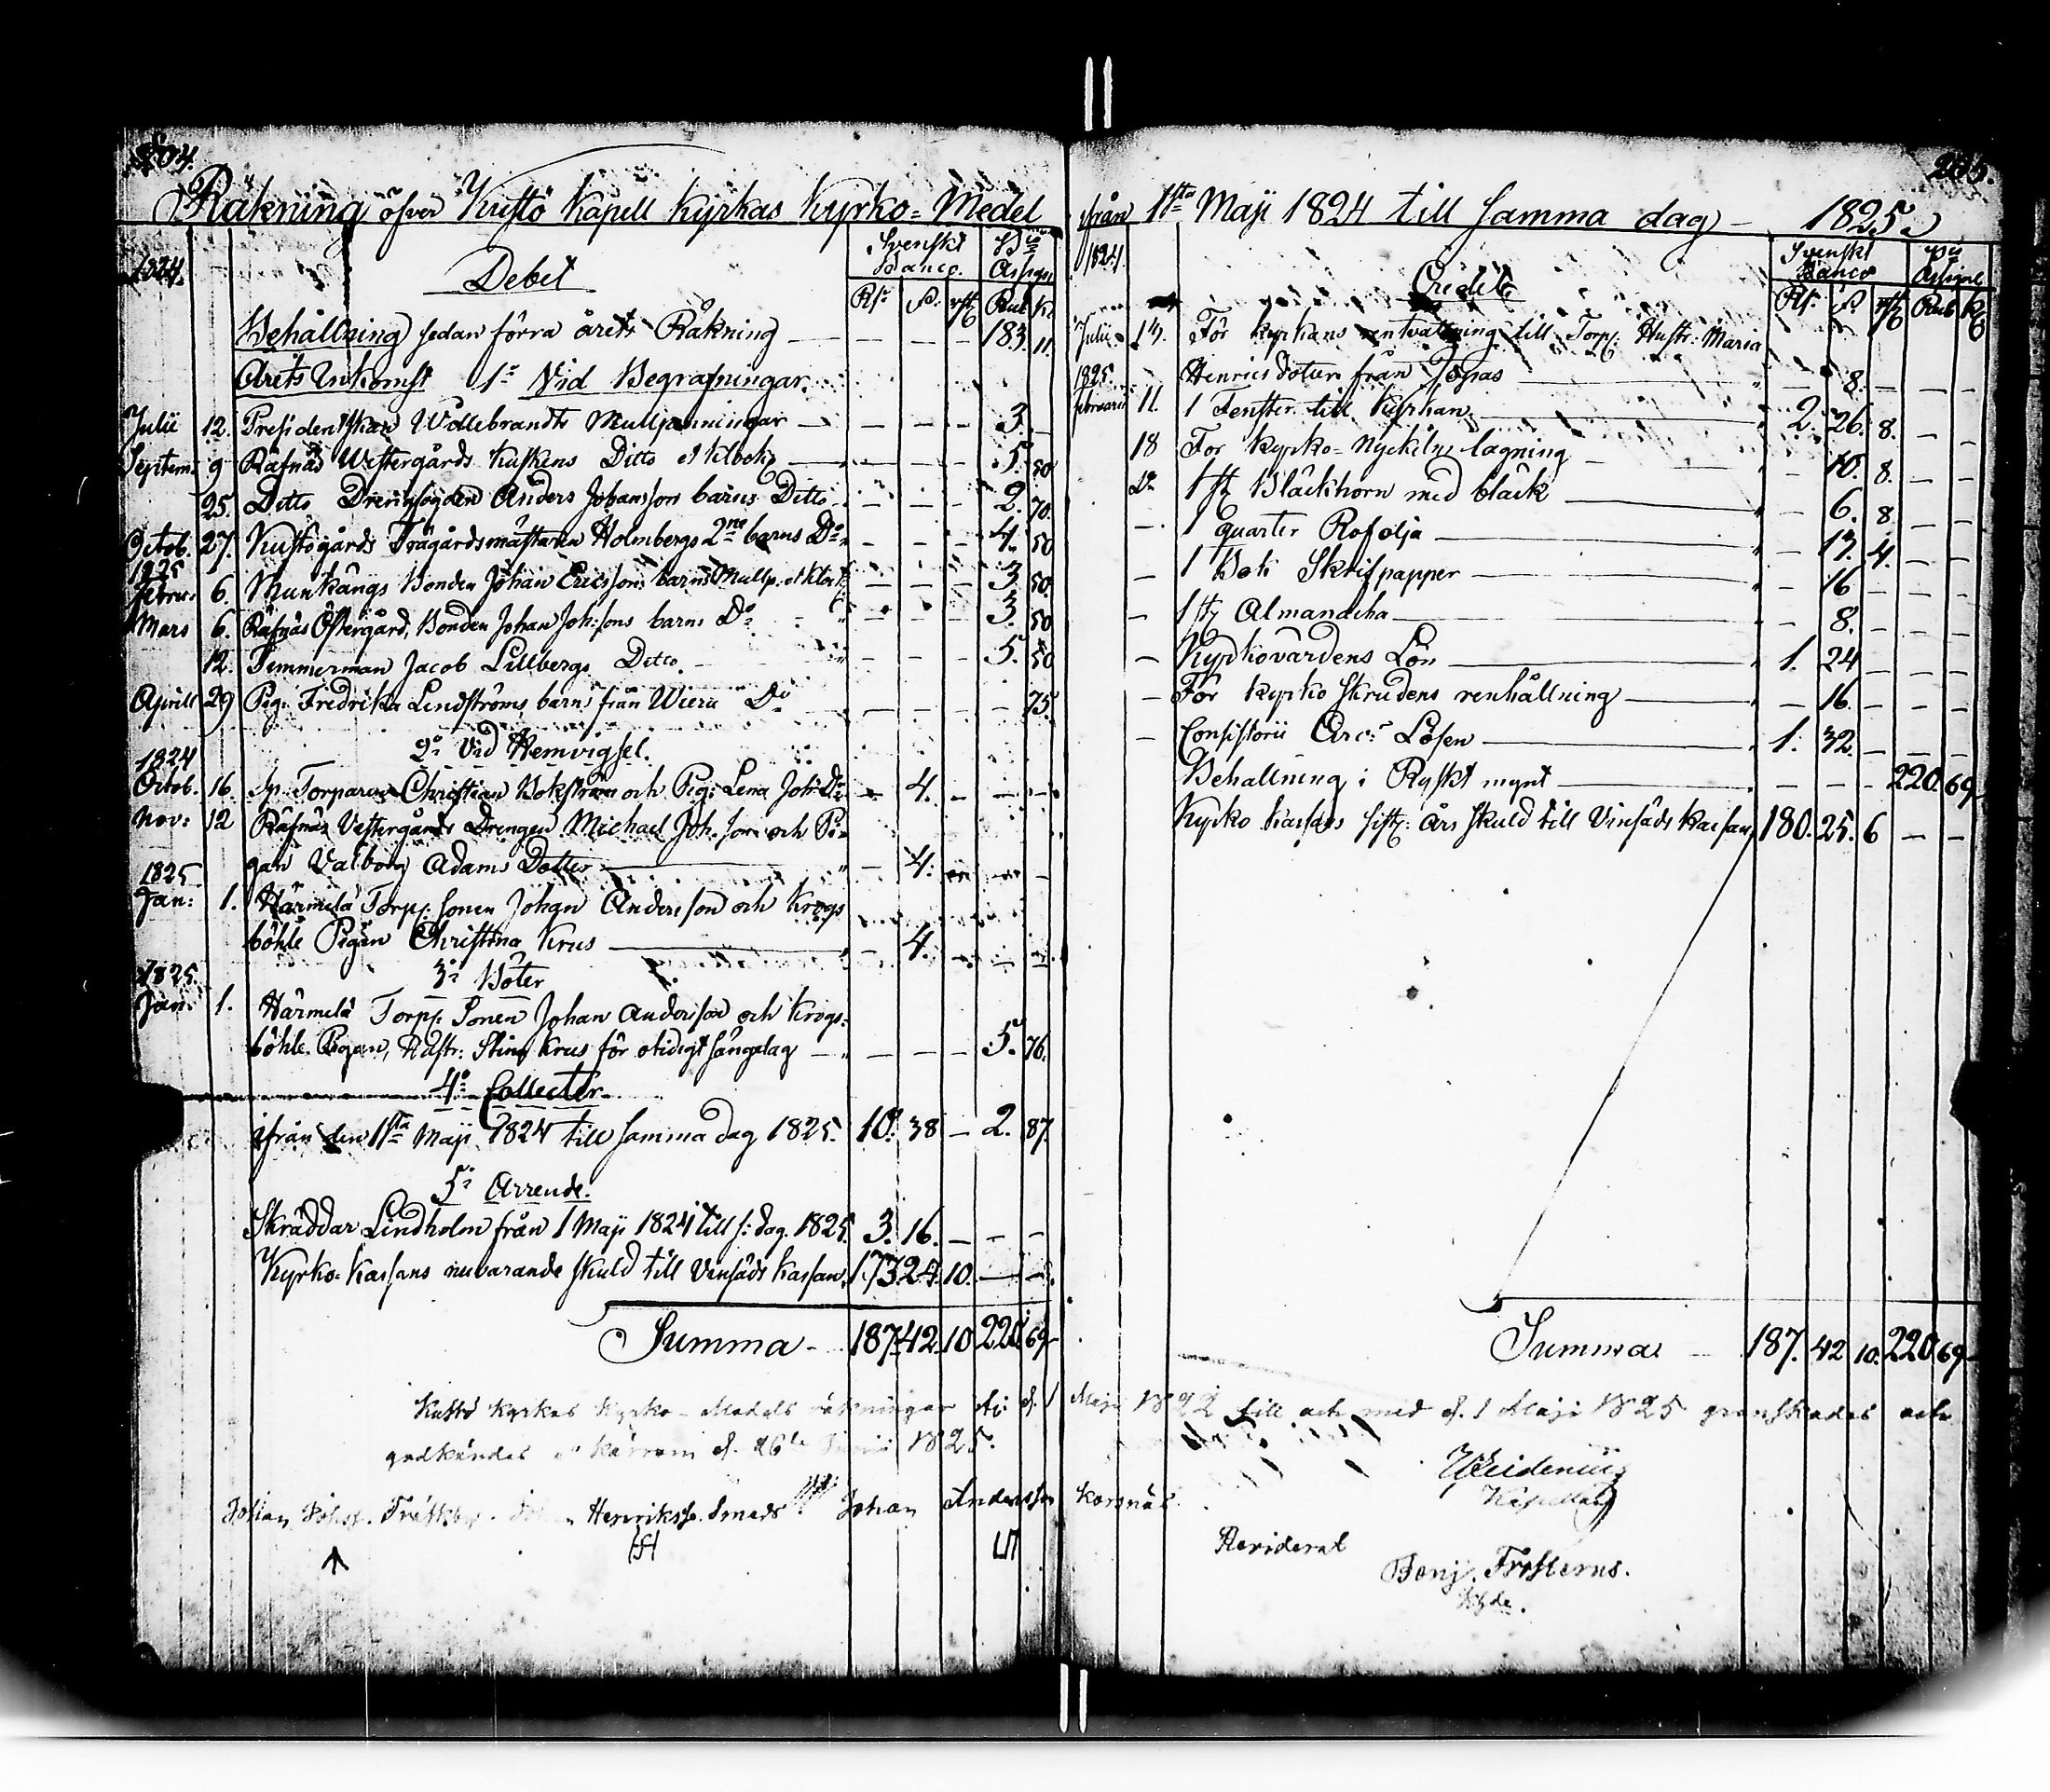 204.
Räkning öfver Kustö Kapell Kyrkas Kyrko-Medel
1824. Debet Svenskt Banco. Bco Assign
Rdr s. rst Rub K.
Behållning sedan förra årets Räkning — — — — 183. 11.
Årets Inkomst 1o Vid Begrafningar.
Julii 12. Presidentskan Willebrandts Mullpenningar — — — — 3. —
Septem. 9 Räfnäs Westergårds Kuskens Ditto — — — — 5. 50
25. Ditto Anders Johanssons barns Ditto — — — 2. 70.
Octob. 27. Kustögårds Trägårdsmästaren Holmbergs 2ne barns Do — — — 4. 50
1825
Febru. 6. Munkängs Bonden Johan Ericssons barns Mullp. et klock — — — 3. 50
Mars 6. Räfnäs Östergård, Bonden Johan Joh:sons barns Do — — — 3. 50
12. Timmerman Jacob Lillbergs Ditto. — — — 5. 50
Aprill 29 Pig. Fredrika Lindströms barns från Wiera Do — — — — 75.
2o Vid Hemvigsel.
1824
Octob. 16. Sp. Torparen Christian Bokström och Pig: Lena Joh:Dr — 4. — — —
Nov: 12 Räfnäs Vestergårds Drengen Michael Joh.son och Pi-
gan Valborg Adams Dotter — — 4. — — —
1825
Jan: 1. Härmelä Torp. sonen Johan Andersson och Krogs
böhle Pigan Christina Krus — — 4. — — —
3o Böter
1825.
Jan. 1. Härmelä Torp. Sonen Johan Andersson och Krogs-
böhle Pigan, Stina Krus för otidigt sängelag — — — — 5. 76.
4o Collecter
ifrån den 1sta Maji 1824 till samma dag 1825. 10. 38 — 2. 87.
5o Arrende.
Skräddar Lindholm från 1 Maji 1824 till s: dag. 1825. 3. 16. — — —
Kyrko-Kassans nuvarande skuld till Vinsäds Kassan. 173. 24. 10. — —
Summa - 187. 42. 10 220. 69
Kustö Kyrkas Kyrko-Medels räkningar d. 1
godkändes d. 26te 1825.
Johan Henrikss. Smeds Johan Andersson
205.
från 1sta Maji 1824 till samma dag — 1825.
1824. Credit Svenskt Banco Assignat
Rdr. s. rst Rub K
Julii 14. För kyrkans rentvättning till Torp. Hustr: Maria
Henrics doter från Jopas — — 8. — — —
1825
Februarii 11. 1 Fenster till Kyrkan — 2. 26. 8. — —
18 För Kyrko-Nyckelns lagning — — 10. 8. — —
Do 1 st Bläckhorn med bläck — — 6. 8 — —
— 1 quarter Rofolja — — 17. 4. — —
— 1 Bok Skrifpapper — — 16 — — —
— 1 st Almanacka — — 8. — — —
— Kyrkovärdens Lön — 1. 24 — — —
— För kyrko skrudens renhållning — — 16. — — —
— Consistorii Lösen — 1. 32. — — —
Behållning i Ryskt mynt — — — — 220. 69
Kyrko Kassans sist: års skuld till Vinsäds Kassan 180. 25. 6 — —
Summa — 187. 42 10. 220 69
Maji 1822 till och med d. 1 Maji 1825 granskades och
Kapellan
Korsnäs
Reviderat
Benj. Frosterus.